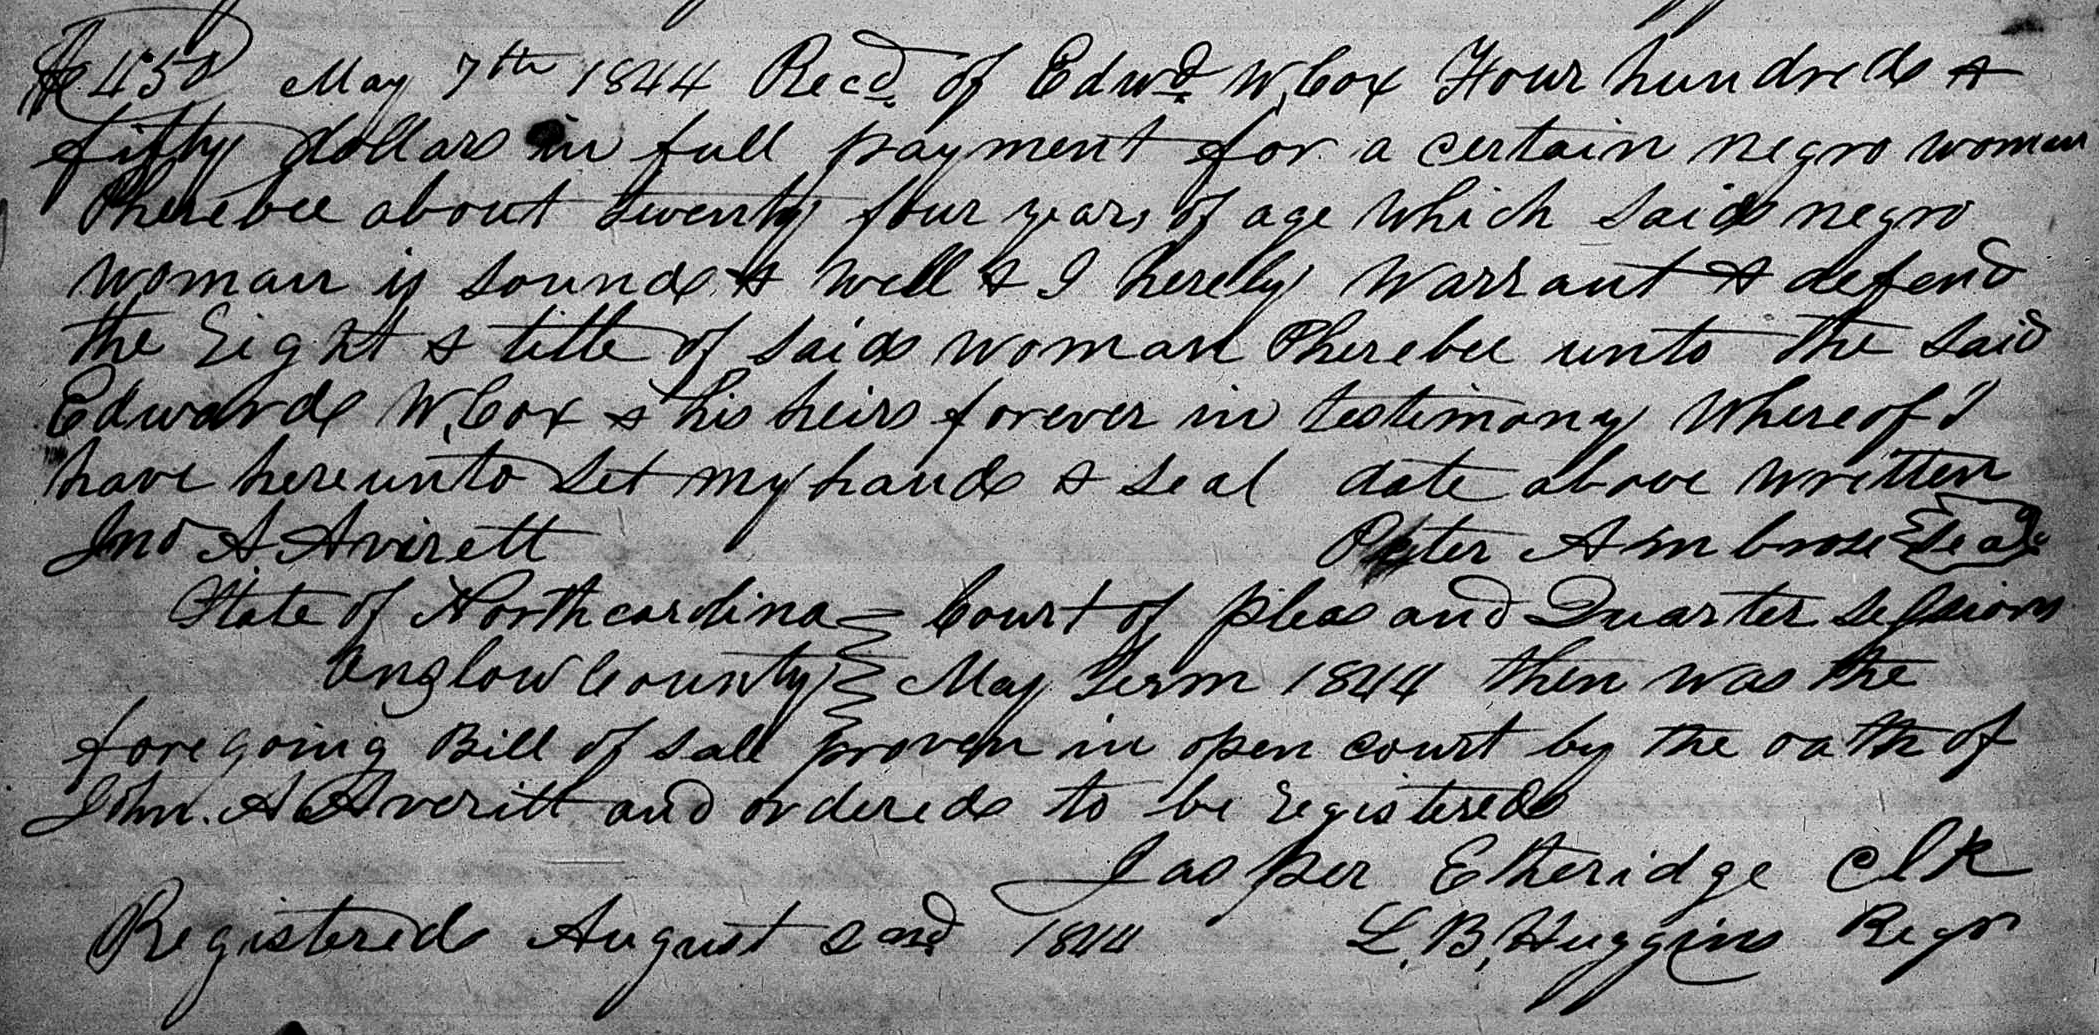 $450 May 7th 1844 Recd. of Edwd. W, Cox Four hundred &
fifty dollars in full payment for a certain negro woman
Pherebee about twenty four years of age which said negro
woman is sound & well & I hereby warrant & defend
the right & title of said woman Pherebee unto the said
Edward W, Cox & his heirs forever in testimony whereof I
have hereunto set my hand & seal date above written
Jno A Averett Peter Ambrose Seal
State of North carolina Court of pleas and Quarter sessions
Onslow County May Term 1844 then was the
foregoing Bill of sale proven in open court by the oath of
John. A Averitt and ordered to be registered
Jasper Etheridge Clk
Registered August 2nd 1844 L. B, Huggins Regr